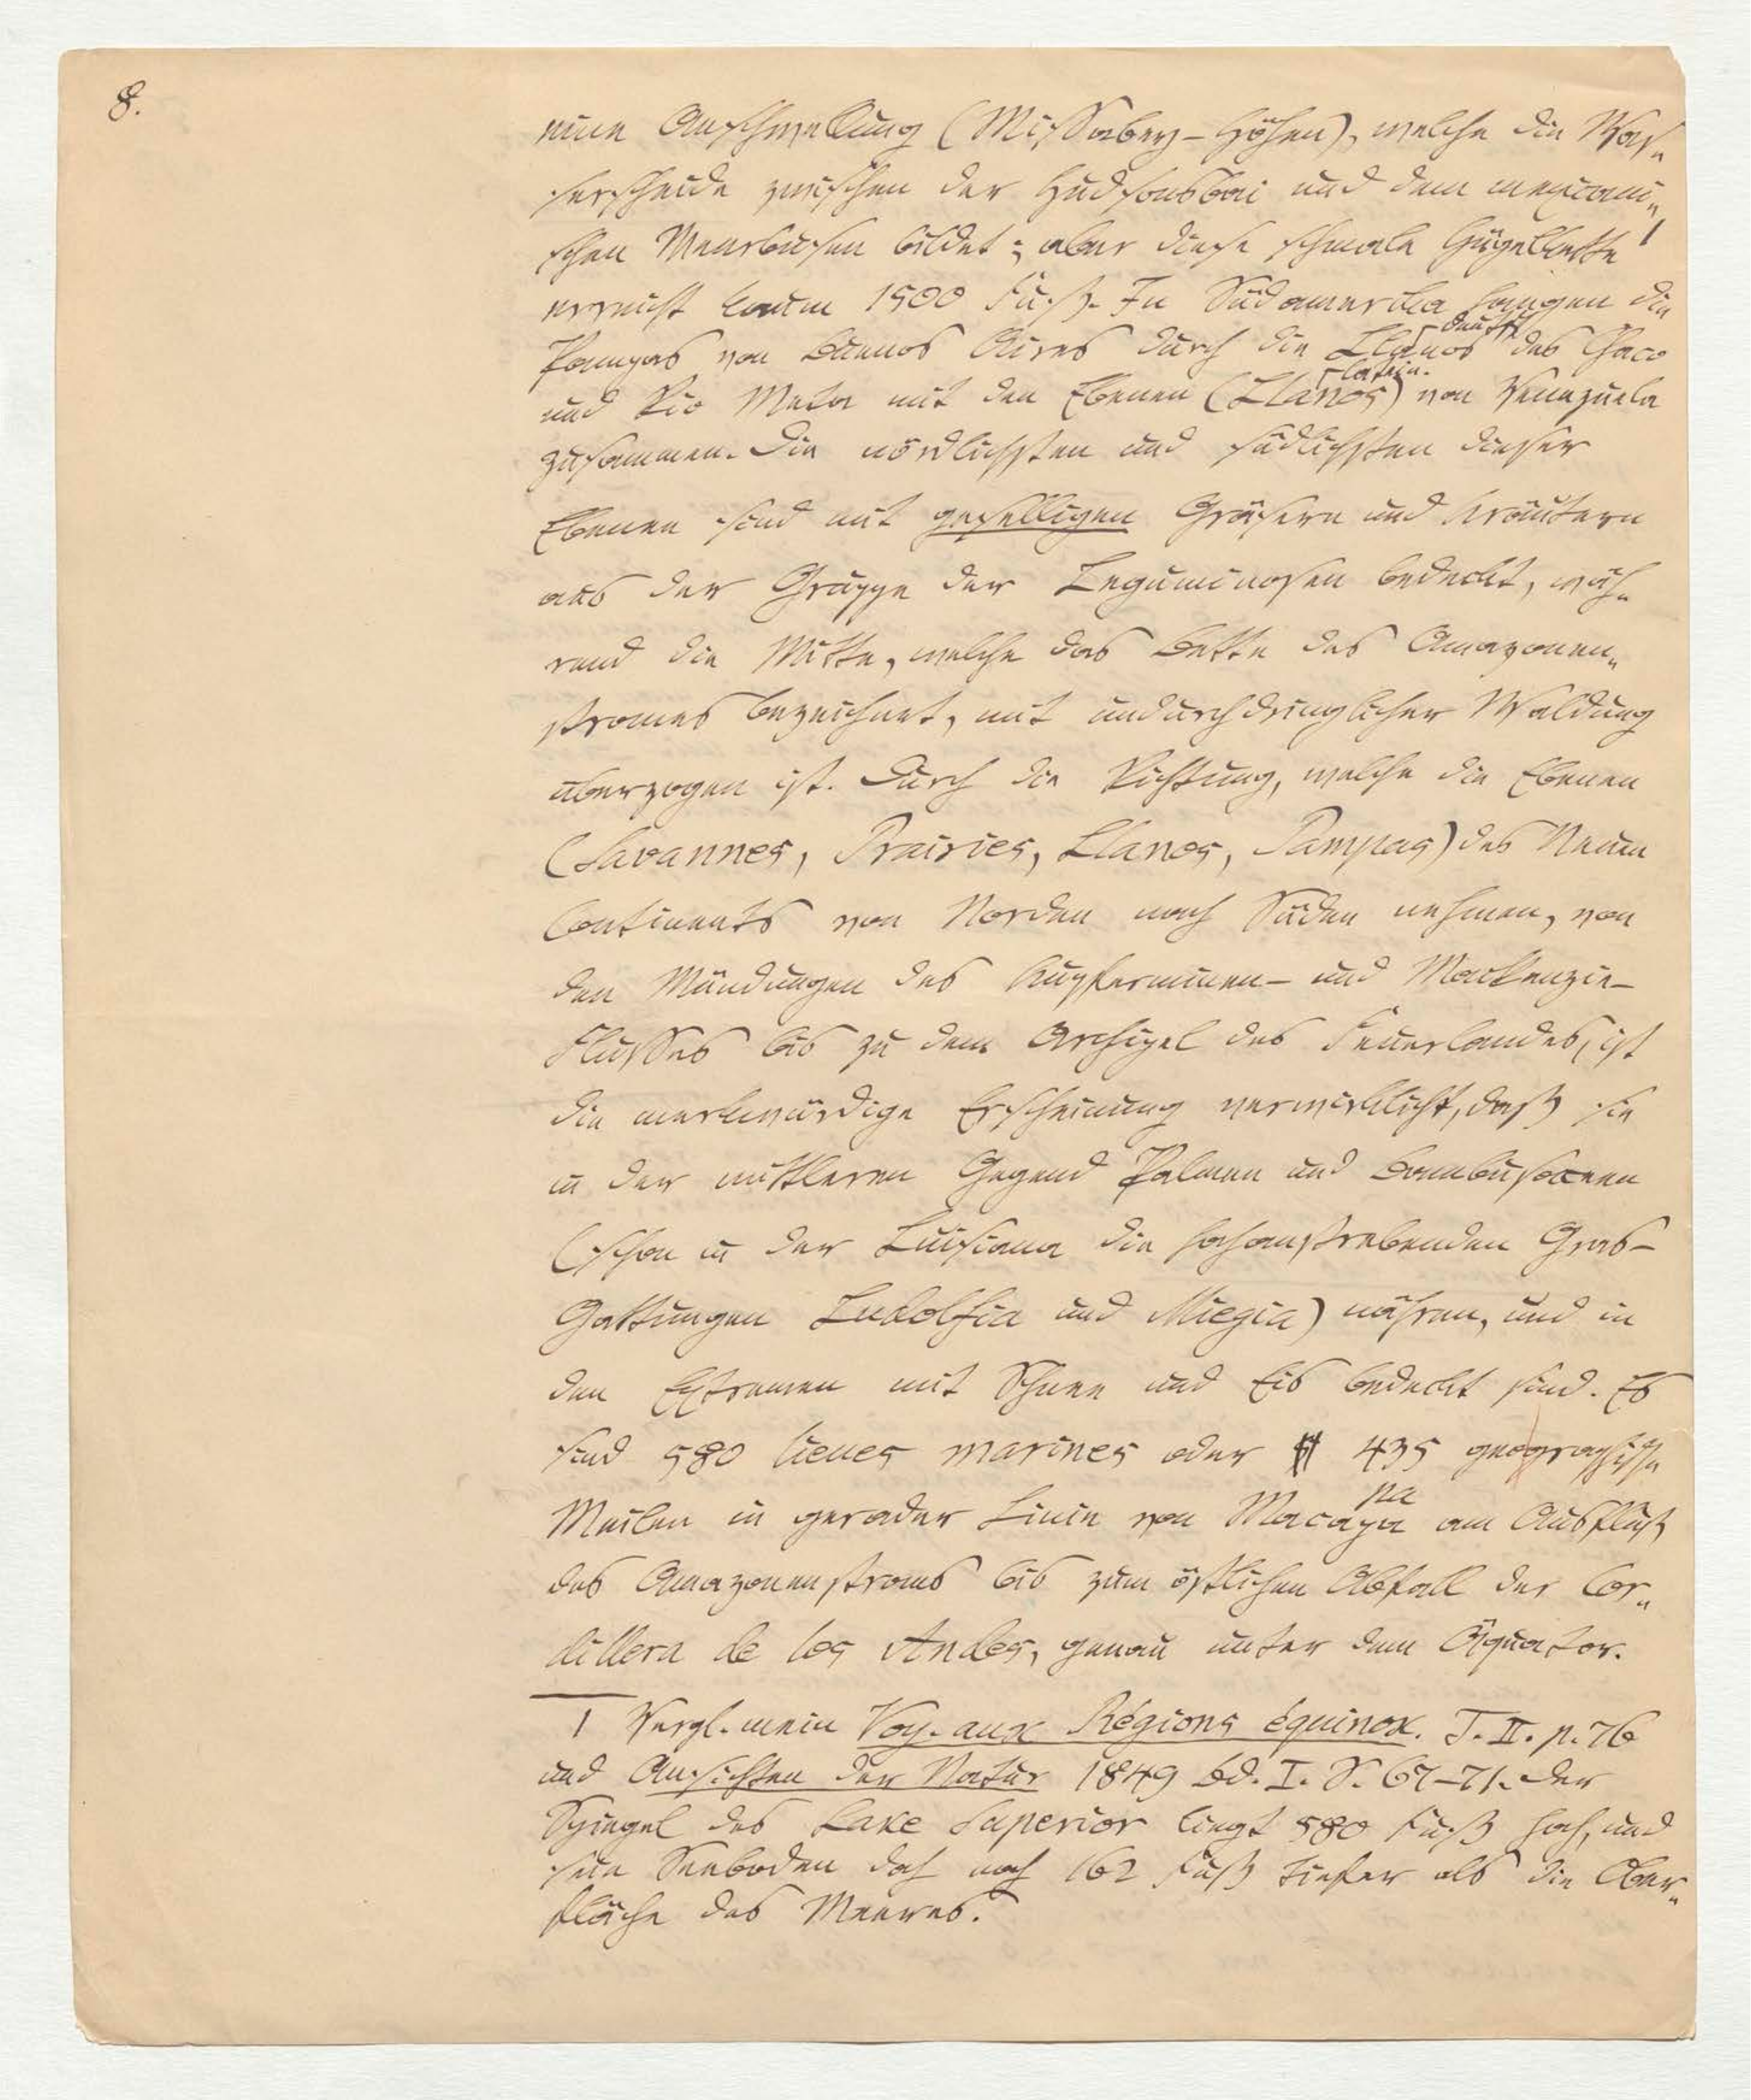 8.
eine Anschwellung (Missabay-Höhen), welche die Was-
serscheide zwischen der Hudsonsbai und dem mexicani-
schen Meerbusen bildet; aber diese schmale Hügelkette 1
erreicht kaum 1500 Fuß. In Südamerika hangen die
deutsch
Pampas von Buenos Aires durch die Llanos des Chaco
latein.
und Rio Meta mit den Ebenen (Llanos) von Venezuela
zusammen. Die nördlichsten und südlichsten dieser
Ebenen sind mit geselligen Gräsern und Kräutern
aus der Gruppe der Leguminosen bedeckt, wäh-
rend die Mitte, welche das Bette des Amazonen-
stromes bezeichnet, mit undurchdringlicher Waldung
überzogen ist. Durch die Richtung, welche die Ebenen
(Savannes, Prairies, Llanos, Pampas) des Neuen
Continents von Norden nach Süden nehmen, von
den Mündungen des Kupferminen- und Mackenzie-
Flusses bis zu dem Archipel des Feuerlandes, ist
die merkwürdige Erscheinung verwirklicht, daß sie
in der mittleren Gegend Palmen und Bambusaceen
(schon in der Luisiana die hohanstrebenden Gras-
Gattungen Ludolfia und Miegia) nähren, und in
den Extremen mit Schnee und Eis bedeckt sind. Es
sind 580 lieues marines oder 435 geographische
pa
Meilen in gerader Linie von Macapa am Ausfluß
des Amazonenstroms bis zum östlichen Abfall der Cor-
dillera de los Andes, genau unter dem Äquator.
1 Vergl. mein Voy. aux Régions équinox. T. II. p. 76
und Ansichten der Natur 1849 Bd. I. S. 67-71. Der
Spiegel des Lake Superior liegt 580 Fuß hoch, und
sein Seeboden doch noch 162 Fuß tiefer als die Ober-
fläche des Meeres.